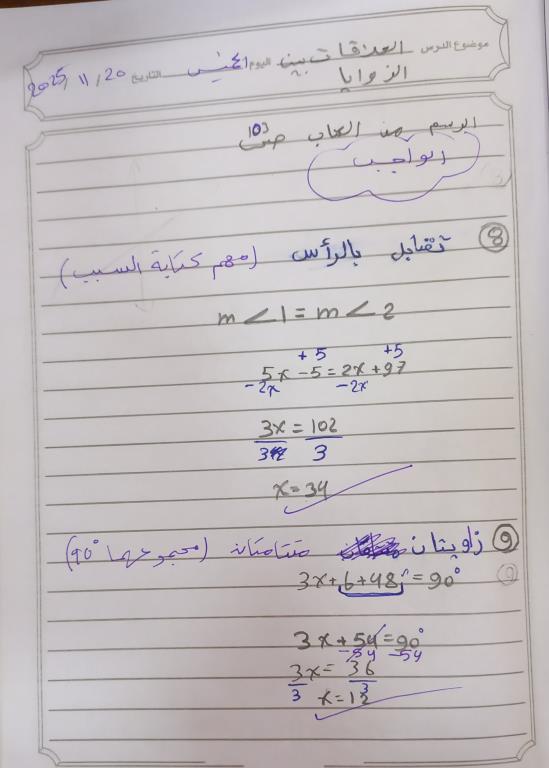 موضوع الدرس العلاقات بين الزوايا اليوم الخميس التاريخ 20 / 11 / 2025
الرسم من الكتاب ص 103
الواجب
8 تقابل بالرأس (مهم كتابة السبب)
m<1 = m<2
+5 +5
5x - 5 = 2x + 97
-2x -2x
3x = 102
3 3
x = 34
9 زاويتان متتامتان (مجموعهما 90°)
3x + 6 + 48° = 90°
3x + 54 = 90°
-54 -54
3x = 36
3 3
x = 12